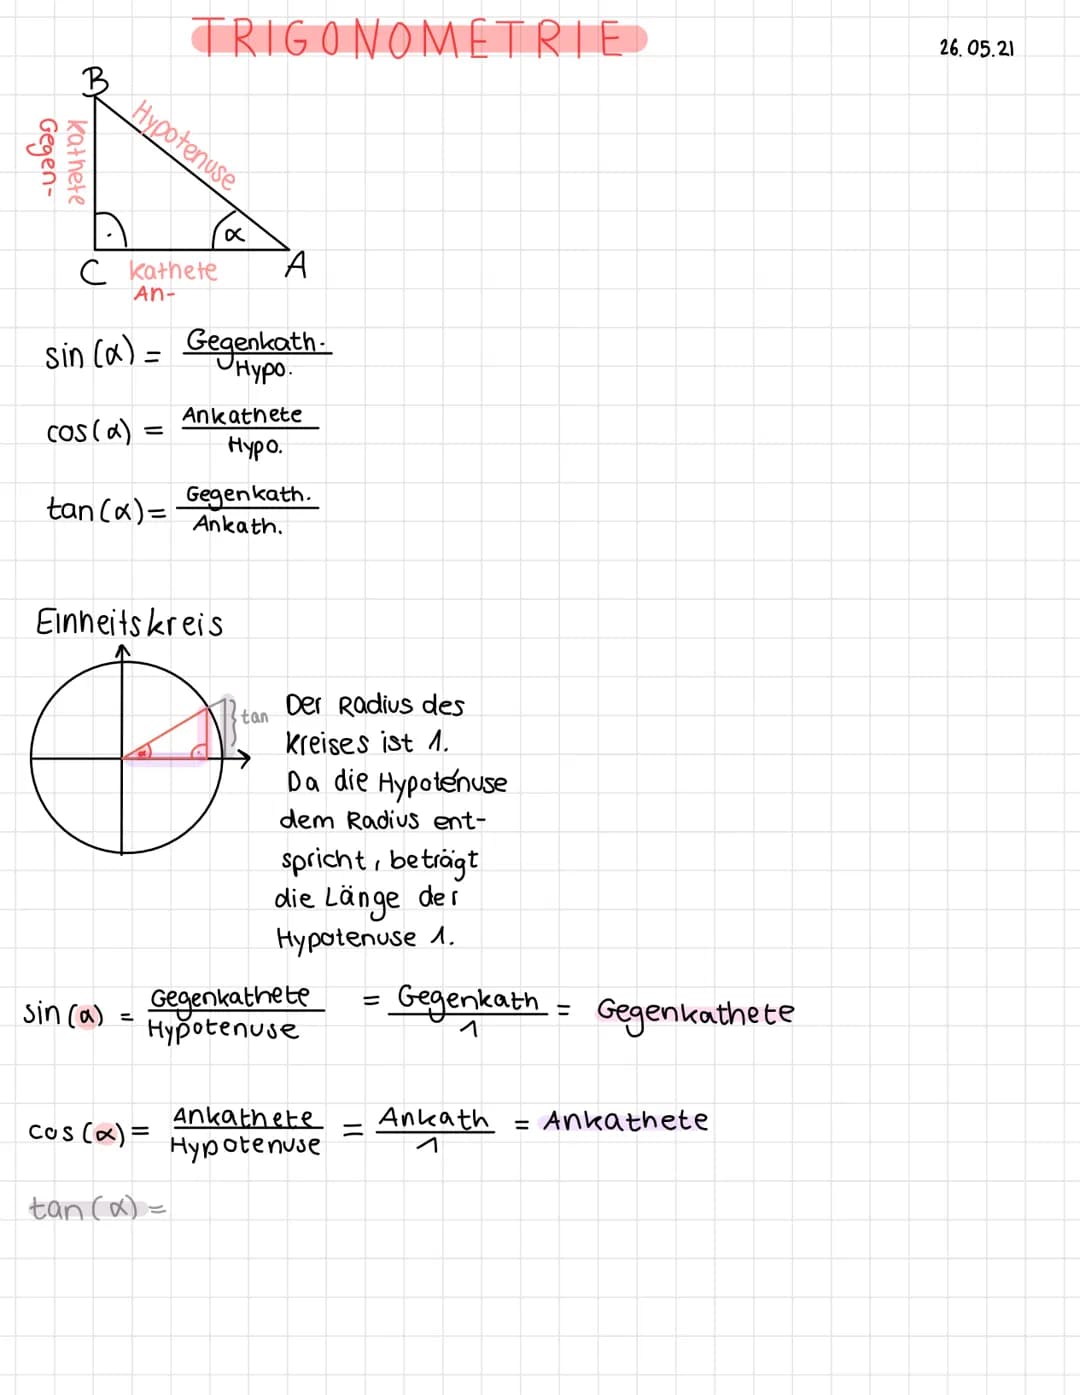 TRIGONOMETRIE
26.05.21
B
Hypotenuse
Kathete
Gegen-
α
C
Kathete
A
An-
sin (α) = Gegenkath.
Hypo.
cos(α) = Ankathete
Hypo.
tan(α) = Gegenkath.
Ankath.
Einheitskreis
tan
α
Der Radius des
Kreises ist 1.
Da die Hypotenuse
dem Radius ent-
spricht, beträgt
die Länge der
Hypotenuse 1.
sin (α) = Gegenkathete = Gegenkath = Gegenkathete
Hypotenuse 1
cos (α) = Ankathete = Ankath = Ankathete
Hypotenuse 1
tan (α) =